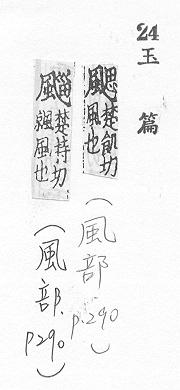 24 玉篇
颸 楚飢切 風也
(風部 p.290)
楚持切 風也
(風部. p290)